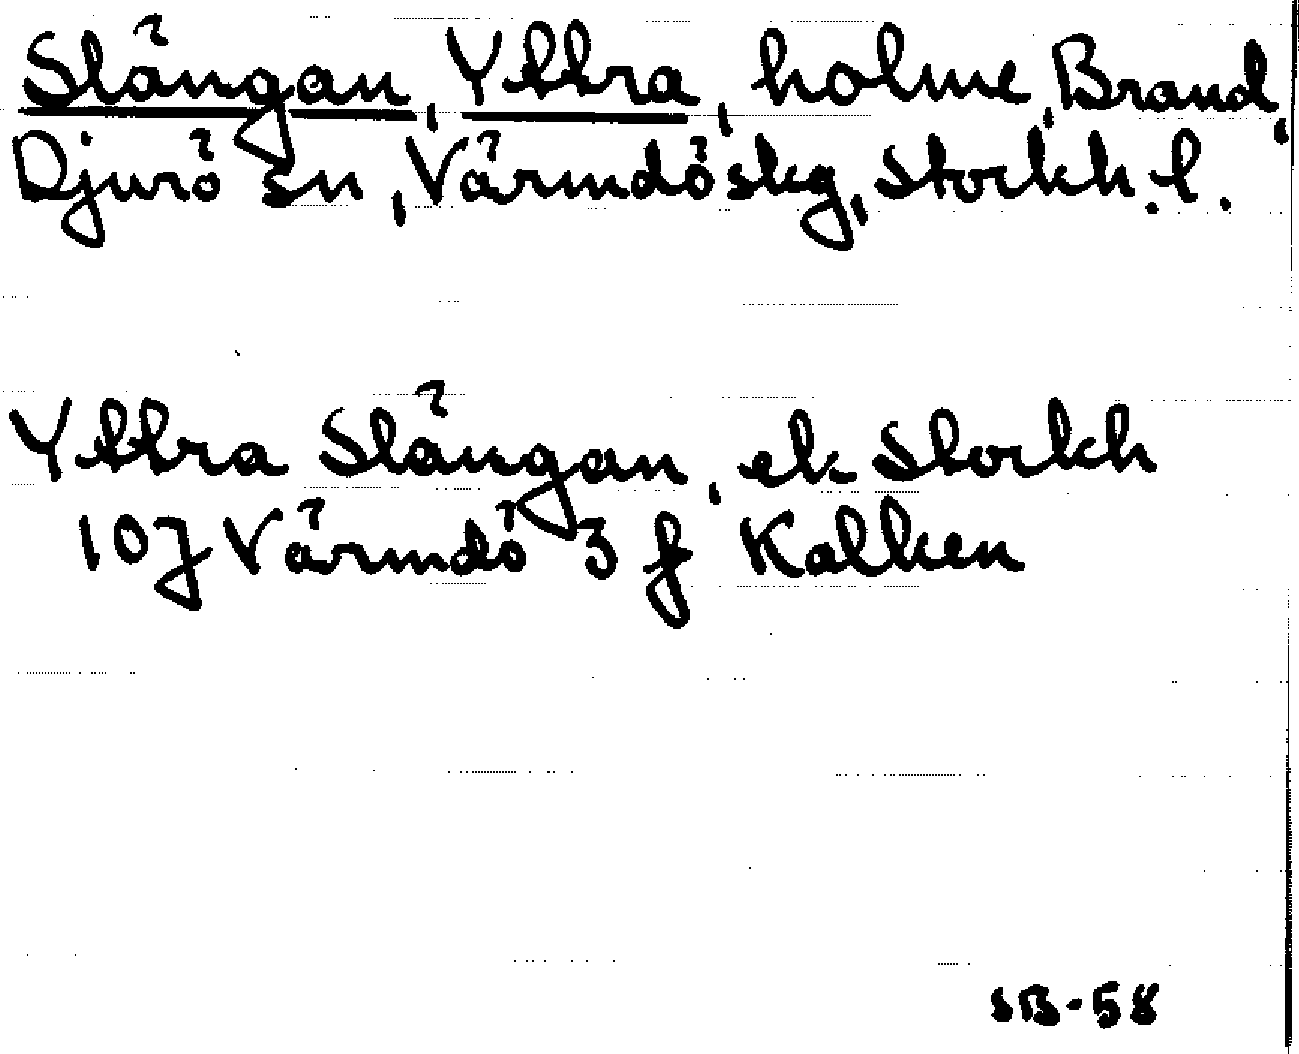 Slängan, Yttra, holme, Brand,
Djurö sn, Värmdö skg, Stockh. l.
Yttra Slängan, ek Stockh
10J Värmdö 3 f Kalken
SB-58